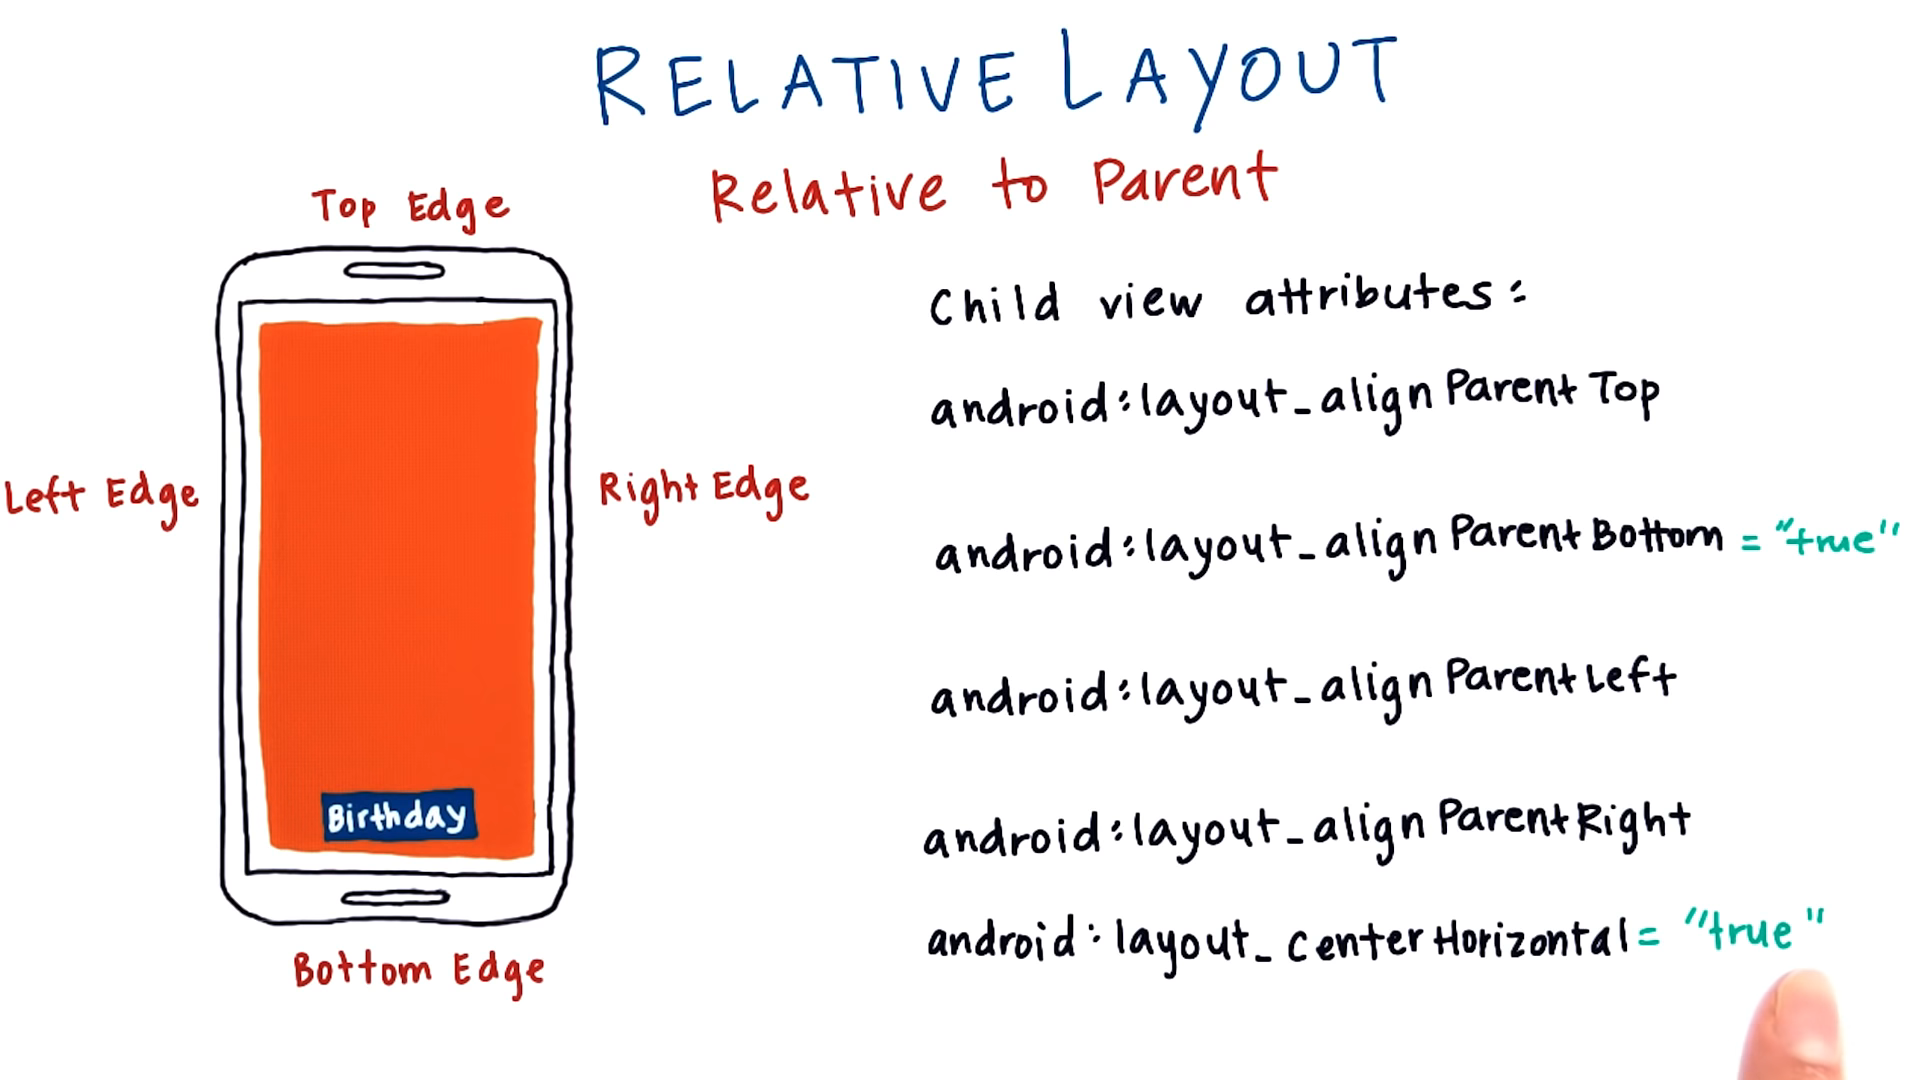 RELATIVE LAYOUT
Relative to Parent
Top Edge
Left Edge
Right Edge
Birthday
Bottom Edge
Child view attributes:
android:layout_alignParentTop
android:layout_alignParentBottom = "true"
android:layout_alignParentLeft
android:layout_alignParentRight
android:layout_centerHorizontal = "true"